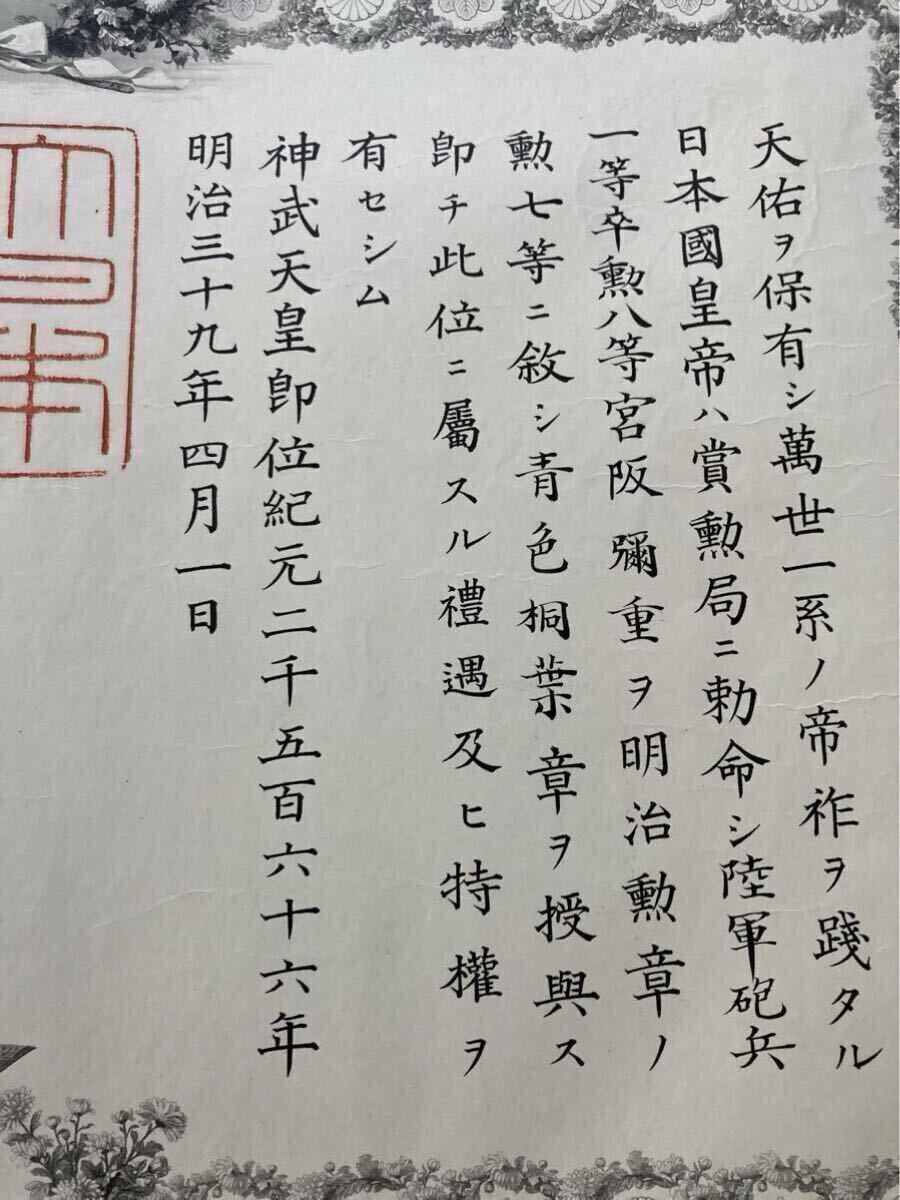 天佑ヲ保有シ萬世一系ノ帝祚ヲ踐タル
日本國皇帝ハ賞勳局ニ勅命シ陸軍砲兵
一等卒勳八等宮阪彌重ヲ明治勳章ノ
勳七等ニ敘シ青色桐葉章ヲ授與ス
卽チ此位ニ屬スル禮遇及ヒ特權ヲ
有セシム
神武天皇卽位紀元二千五百六十六年
明治三十九年四月一日
大日本